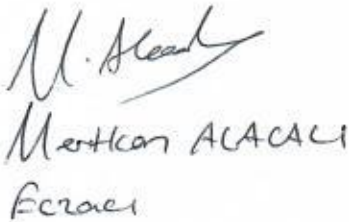 M. Alacalı
Mertkan ALACALI
Eczacı